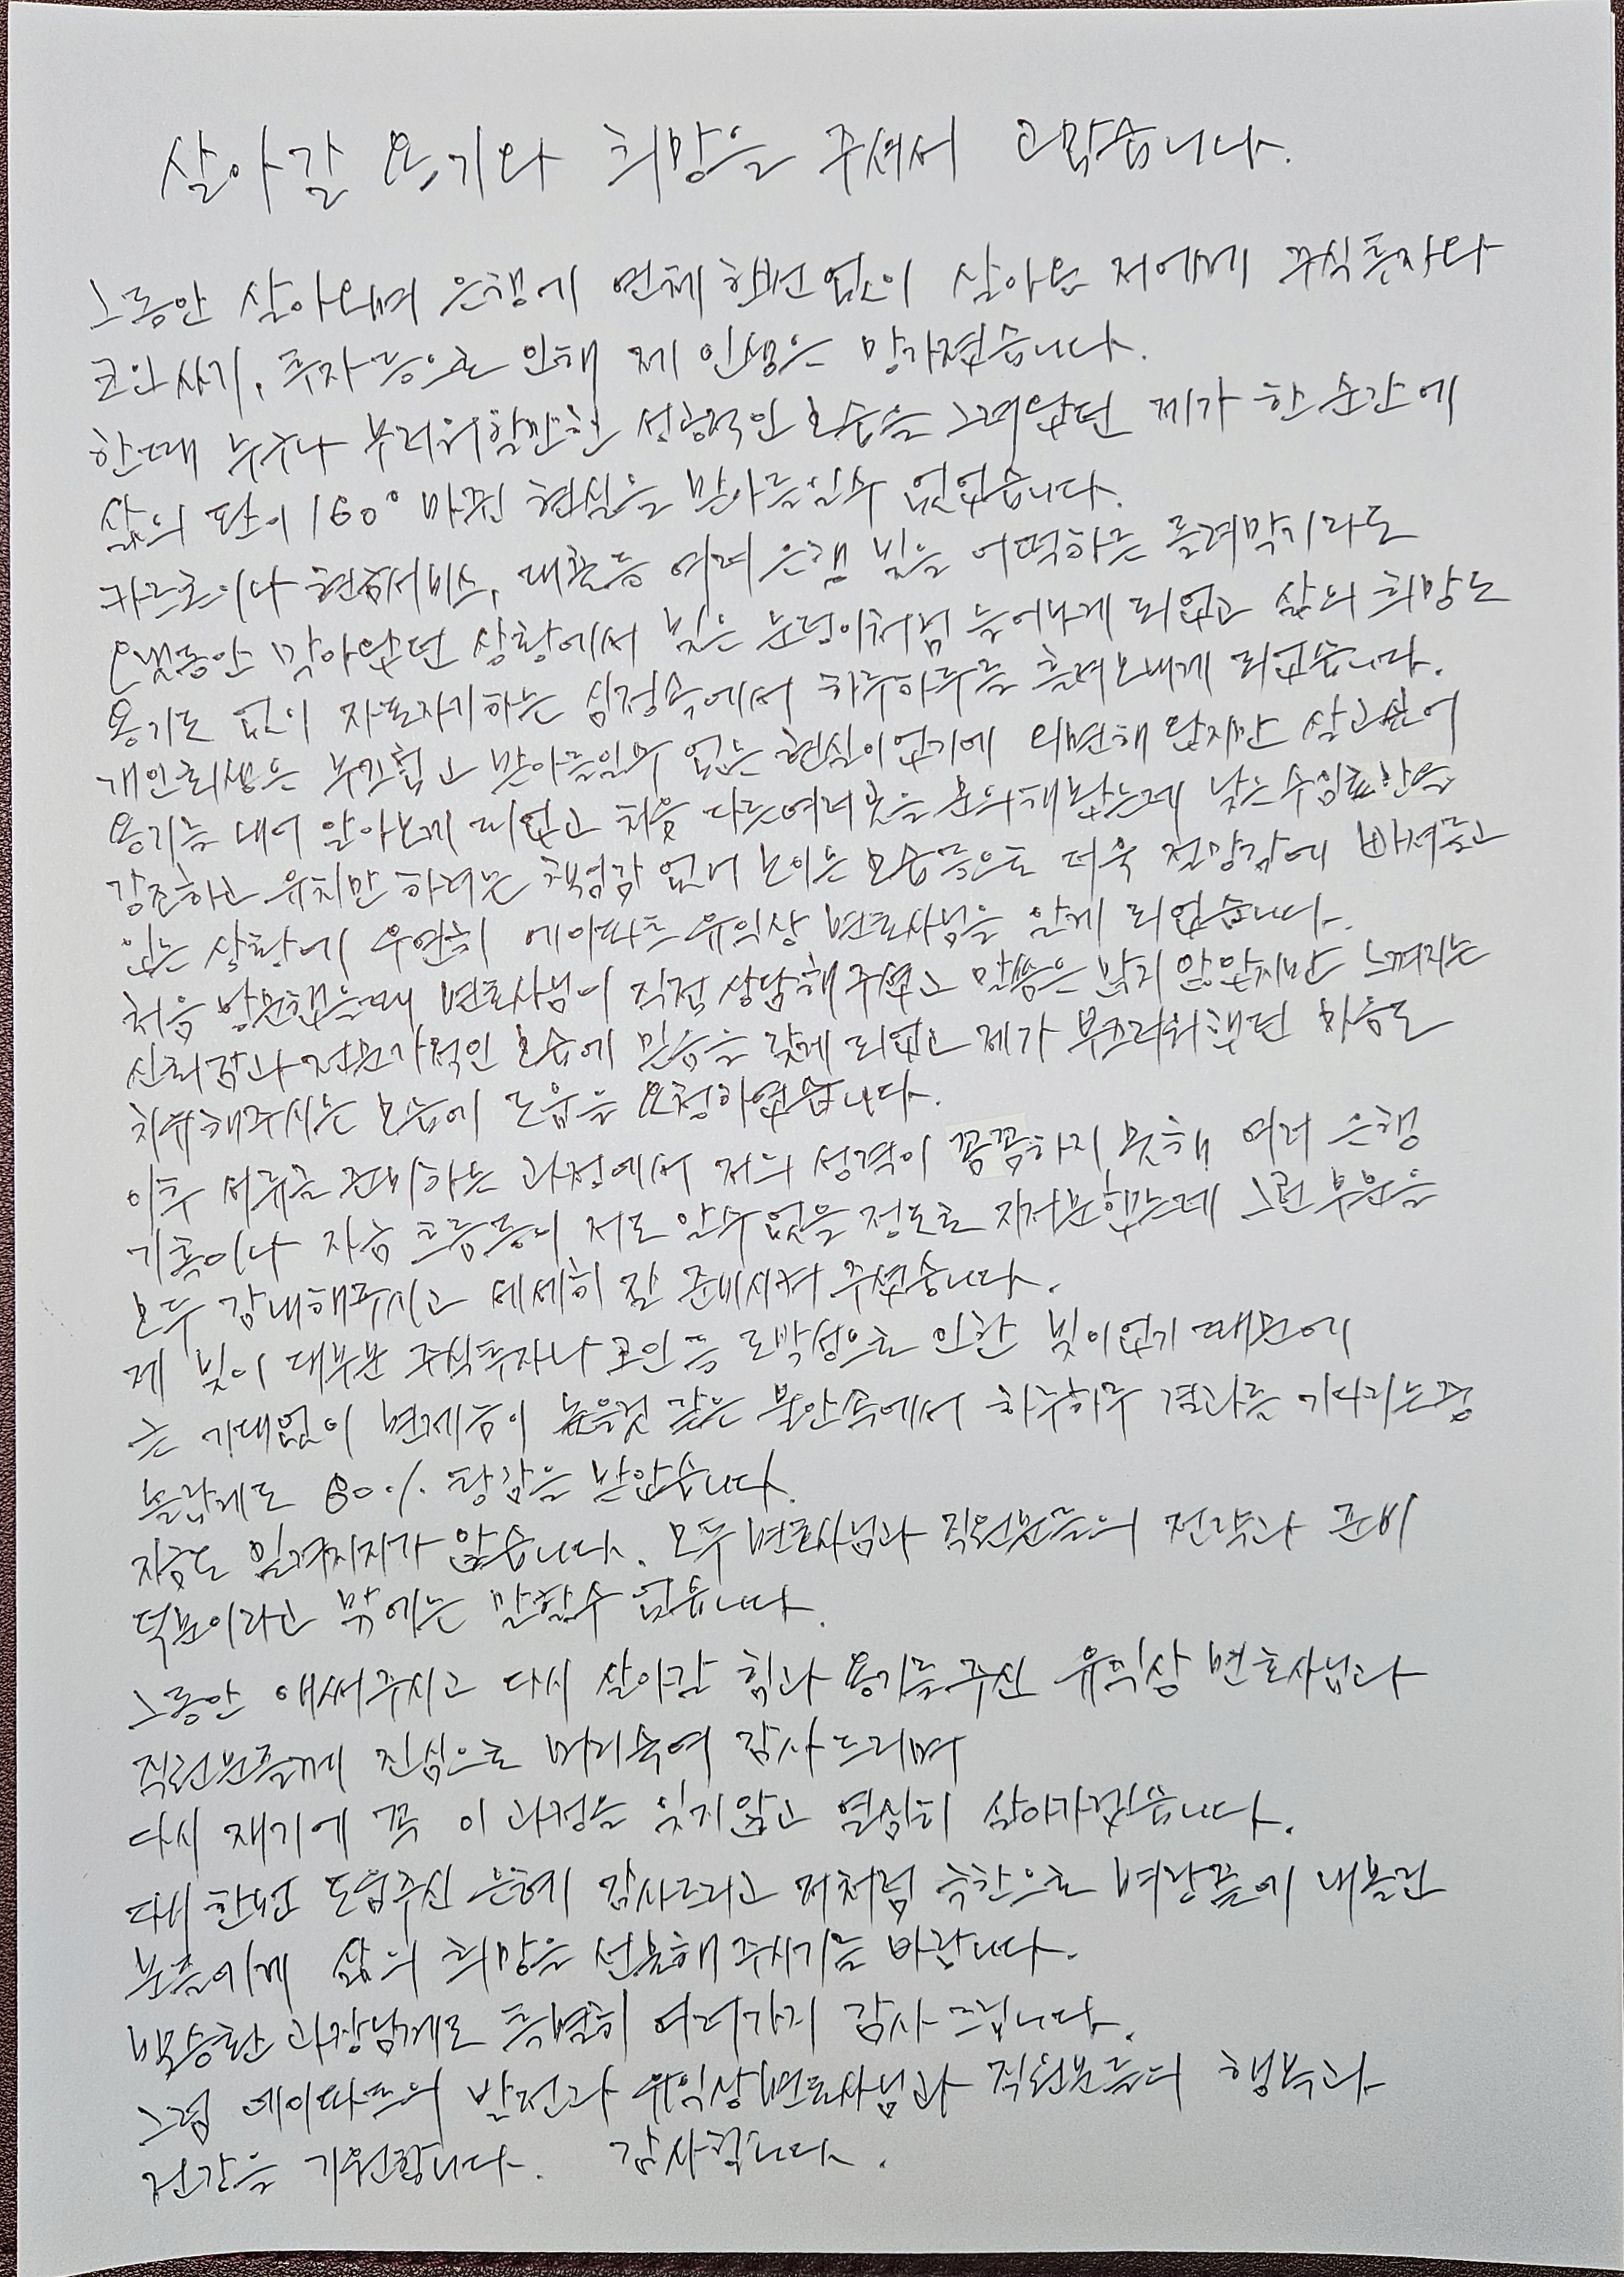 살아갈 용기와 희망을 주셔서 고맙습니다.
그동안 살아오며 은행에 연체 한번 없이 살아온 저에게 주식투자와
코인사기, 투자 등으로 인해 제 인생은 망가졌습니다.
한때 누구나 부러워할만한 성공적인 모습을 그려왔던 제가 한 순간에
삶의 판이 160° 바뀐 현실을 받아들일수 없었습니다.
카드론이나 현금서비스, 대출등 여러 은행 빚을 어떡하든 돌려막기라도
오랫동안 막아왔던 상황에서 빚은 눈덩이처럼 늘어나게 되었고 삶의 희망도
용기도 없이 자포자기하는 심정속에서 하루하루를 흘려보내게 되었습니다.
개인회생은 부끄럽고 받아들일수 없는 현실이었기에 외면해 왔지만 살고싶어
용기를 내어 알아보게 되었고 처음 다른여러곳을 문의해봤는데 낮은수임료만을
강조하고 유치만 하려는 책임감 없어 보이는 모습들으로 더욱 절망감에 빠져들고
있는 상황에 우연히 에이파트 유익상 변호사님을 알게 되었습니다.
처음 방문했을때 변호사님이 직접 상담해 주셨고 말씀은 많지 않았지만 느껴지는
신뢰감과 전문가적인 모습에 믿음을 갖게 되었고 제가 부끄러워했던 마음도
치유해주시는 모습에 도움을 요청하였습니다.
이후 서류를 준비하는 과정에서 저의 성격이 꼼꼼하지 못해 여러 은행
기록이나 자금 흐름등이 저도 알수없을 정도로 지저분했는데 그런 부분을
모두 감내해주시고 세세히 잘 준비시켜 주셨습니다.
제 빚이 대부분 주식투자나 코인등 도박성으로 인한 빚이었기 때문에
큰 기대없이 변제금이 높을것 같은 불안속에서 하루하루 결과를 기다리는중
놀랍게도 80% 탕감을 받았습니다.
지금도 믿겨지지가 않습니다. 모두 변호사님과 직원분들의 전략과 준비
덕분이라고 밖에는 말할수 없습니다.
그동안 애써주시고 다시 살아갈 힘과 용기를 주신 유익상 변호사님과
직원분들께 진심으로 머리숙여 감사드리며
다시 재기에 꼭 이 과정을 잊지않고 열심히 살아가겠습니다.
다시 한번 도움주신 은혜 감사드리고 저처럼 극한으로 벼랑끝에 내몰린
분들에게 삶의 희망을 선물해 주시기를 바랍니다.
박승환 과장님께도 특별히 여러가지 감사드립니다.
그럼 에이파트의 발전과 유익상변호사님과 직원분들의 행복과
건강을 기원합니다. 감사합니다.